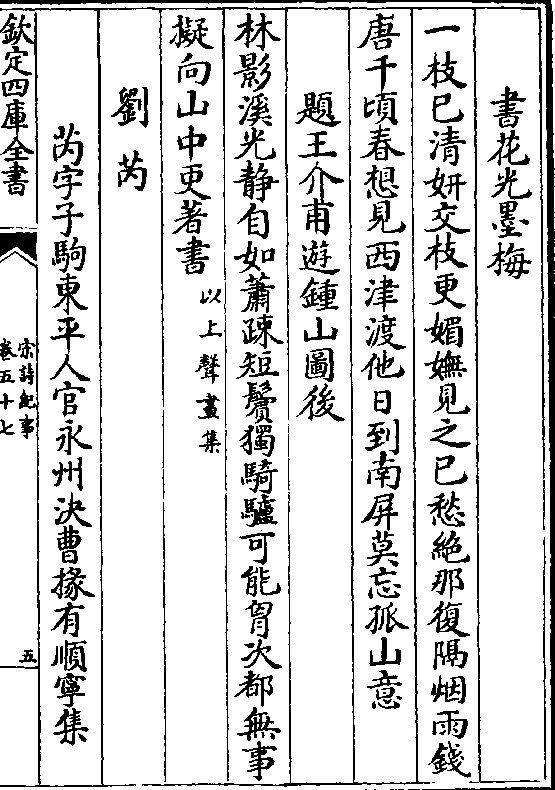 書花光墨梅
一枝已清妍交枝更媚嫵見之已愁絶那復隔烟雨錢
唐千頃春想見西津渡他日到南屏莫忘孤山意
題王介甫遊鍾山圖後
林影溪光静自如蕭踈短鬢獨騎驢可能胷次都無事
擬向山中更著書以上聲畫集
劉芮
芮字子駒東平人官永州決曹掾有順寧集
欽定四庫全書
宋詩紀事
卷五十七
五